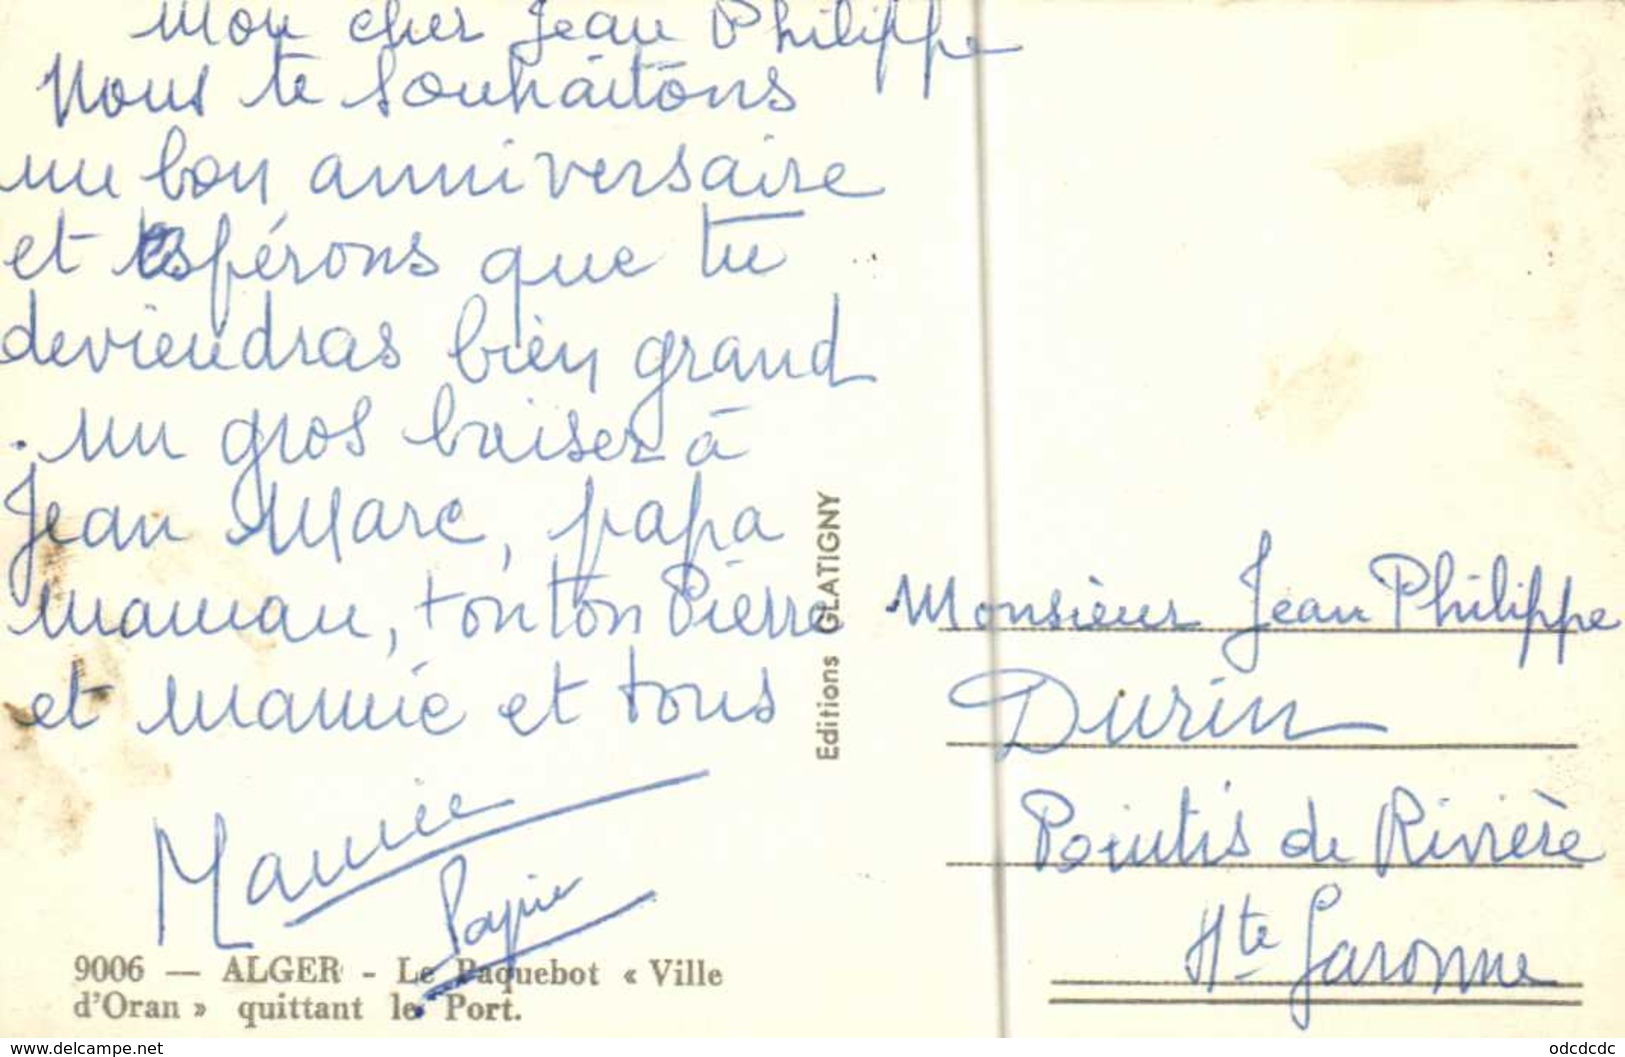 Mon cher Jean Philippe
Nous te souhaitons
un bon anniversaire
et espérons que tu
deviendras bien grand
un gros baiser à
Jean Marc, papa
maman, tonton Pierre
et mamie et tous
Mamie
Papie
9006 — ALGER - Le Paquebot « Ville
d'Oran » quittant le Port.
Editions GLATIGNY
Monsieur Jean Philippe
Durin
Pointis de Rivière
Hte Garonne
www.delcampe.net
odcdcdc